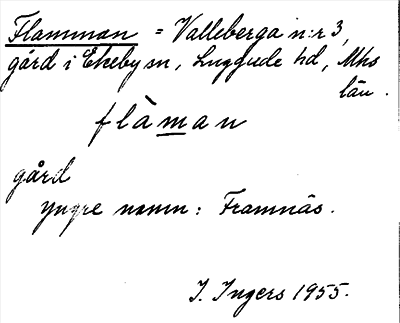 Flamman = Valleberga n:r 3,
gård i Ekeby sn, Luggude hd, Mhs
län.
flàman
gård
yngre namn: Framnäs.
I. Ingers 1955.